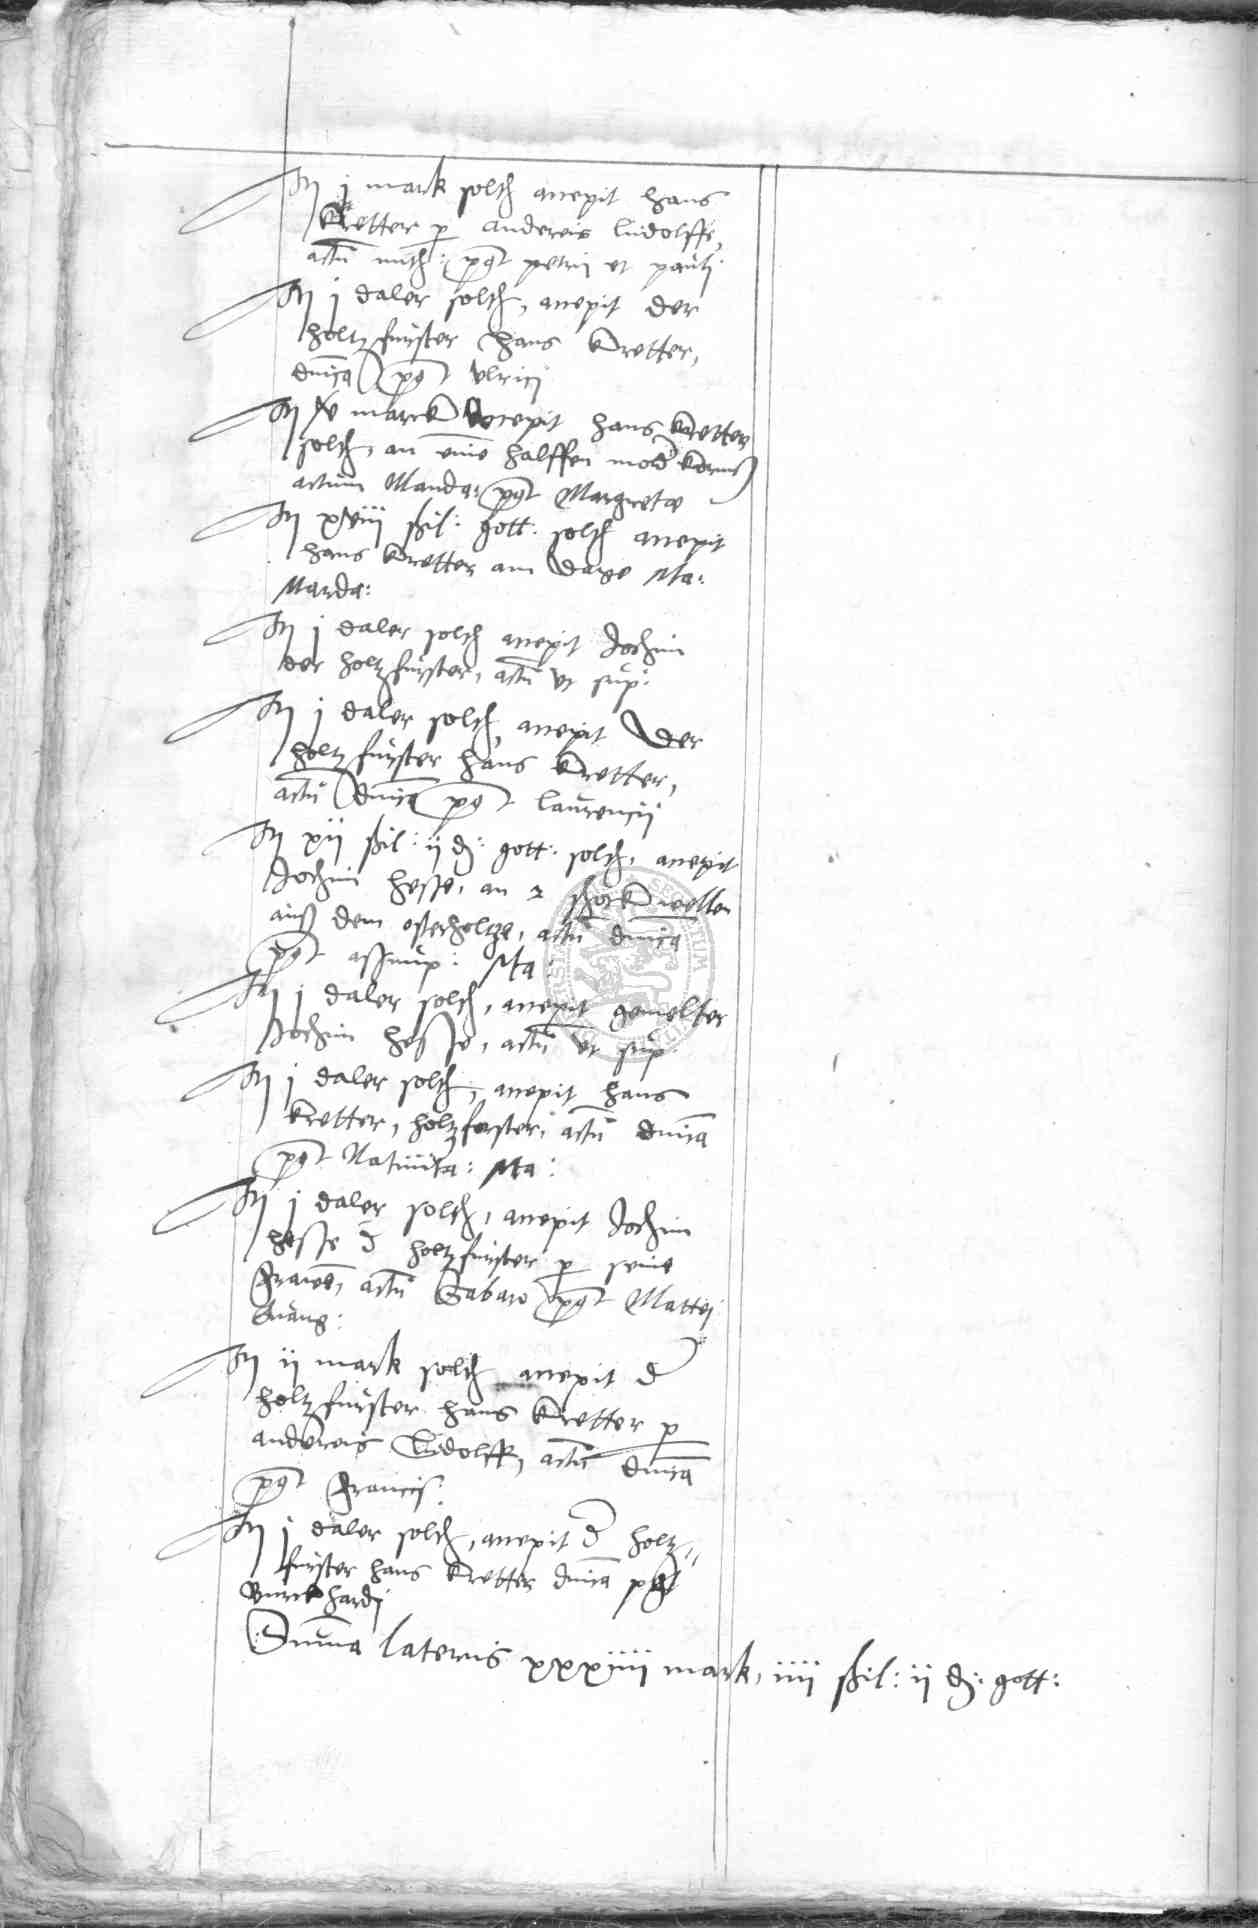 It j mark solth accepit hans
kretter p andereis ludolffs,
actū mith: pꝰt petri et pauli
It j daler solth, accepit der
holtzfurster Hans kretter,
dnica pꝰt vlrici
It marck accepit hans kretter
solth, an eine halffen mod korns
actum Manda: pꝰt Margrete
It xviii ßil: gott: solth accepit
hans kretter am dage Ma:
Marda:
It j daler solth accepit Jochim
der holtzfurster, actū vt sup:
It j daler solth, accepit der
holtzfurster hans kretter,
actū dnica pꝰt laurencij
It xij ßil: ij d: gott: solth, accepit
Jochim hesse, an schock wellen
auß dem osterholtze, actū dnica
pꝰt assump: Ma:
It j daler solth, accepit gemelter
Jochim hesse, actū vt sup:
It j daler solth, accepit hans
kretter, holtzforster, actū dnica
pꝰt Natiuita: Ma:
It j daler solth, accepit Jochim
hesse d holtzfurster p seine
frawe, actū Sabato pꝰt Mattei
Euang:
It ij mark solth accepit d
holtzfurster hans kretter p
andereis Ludolff, actū dnica
pꝰt Francis:
It j daler solth, accepit d holtz„
furster hans kretter dnica pꝰt
Burckhardj
Suma lateris xxxiiii mark, iiii ßil: ij d: gott: